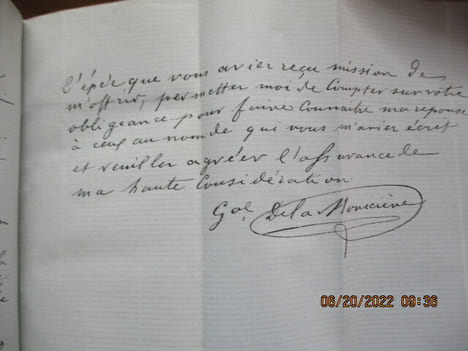 l'épée que vous aviez reçu mission de
m'offrir, permettez moi de compter sur votre
obligeance pour faire connaître ma réponse
à ceux au nom de qui vous m'aviez écrit
et veuillez agréer l'assurance de
ma haute considération
Gal De la Moricière
06/20/2022 09:36